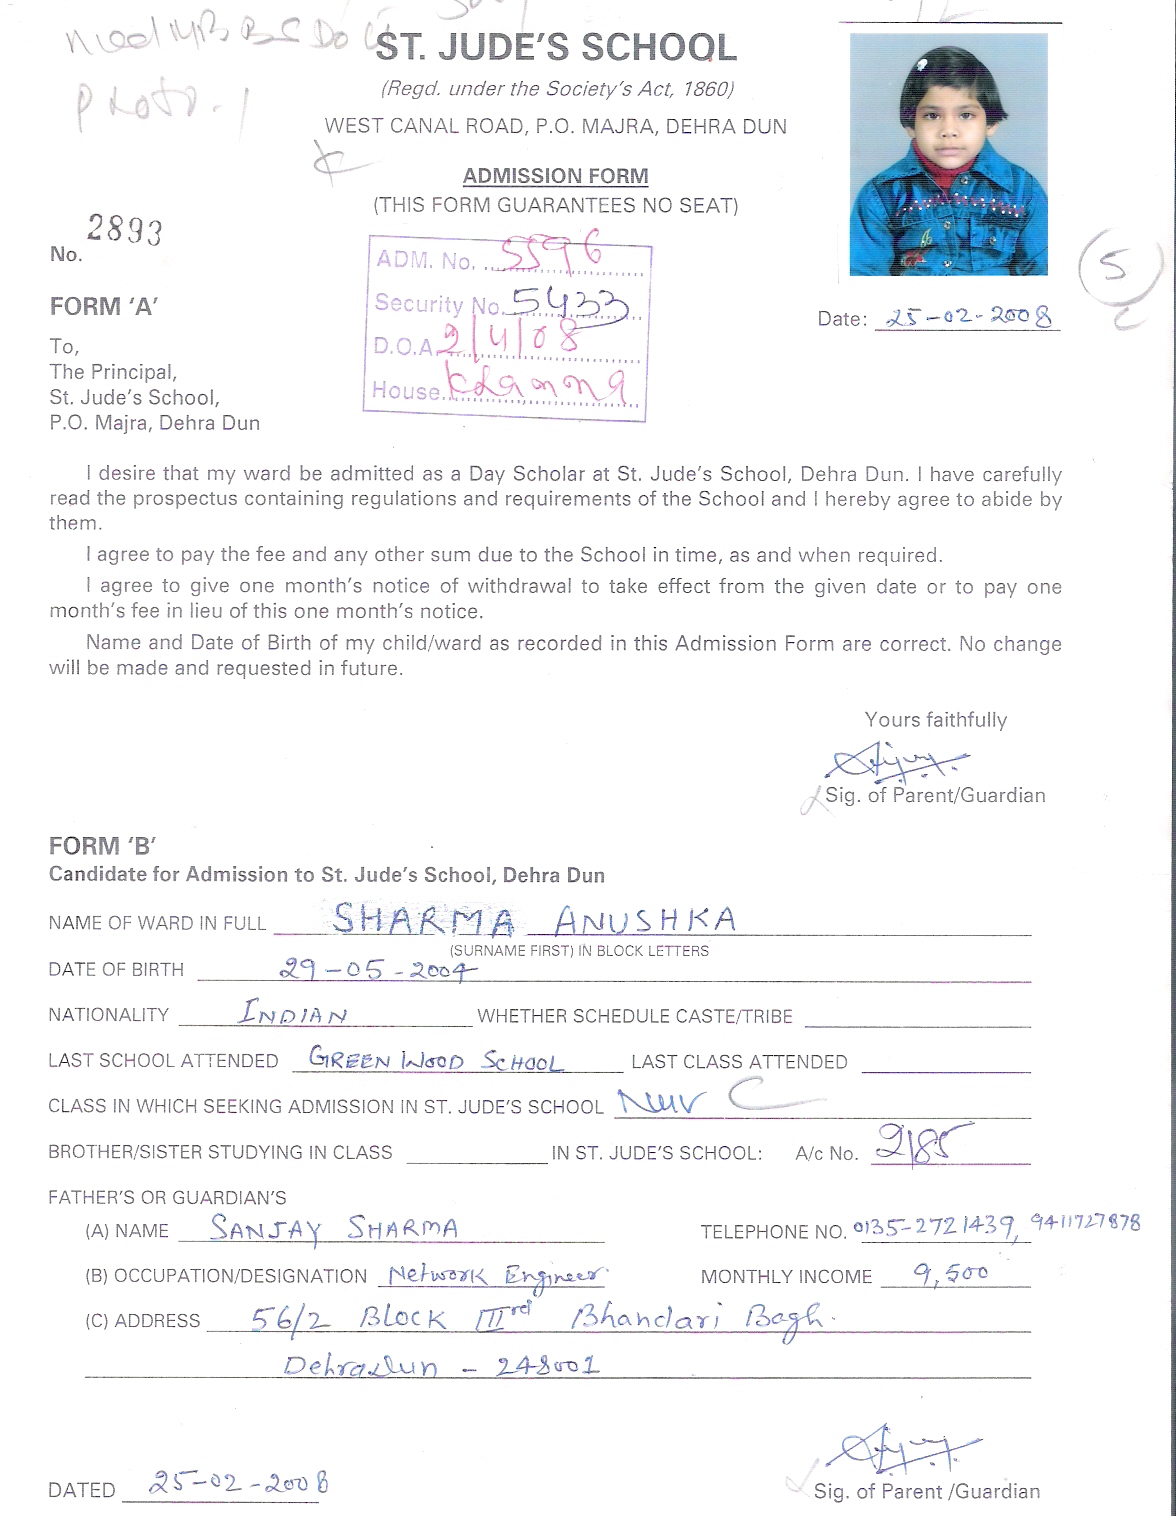 ST. JUDE'S SCHOOL
(Regd. under the Society's Act, 1860)
WEST CANAL ROAD, P.O. MAJRA, DEHRA DUN
ADMISSION FORM
(THIS FORM GUARANTEES NO SEAT)
No. 2893
ADM. No. 5596
Security No. 5433
D.O.A. 2/4/08
House. Khanna
5
C
FORM 'A'
Date: 25-02-2008
To,
The Principal,
St. Jude's School,
P.O. Majra, Dehra Dun
I desire that my ward be admitted as a Day Scholar at St. Jude's School, Dehra Dun. I have carefully
read the prospectus containing regulations and requirements of the School and I hereby agree to abide by
them.
I agree to pay the fee and any other sum due to the School in time, as and when required.
I agree to give one month's notice of withdrawal to take effect from the given date or to pay one
month's fee in lieu of this one month's notice.
Name and Date of Birth of my child/ward as recorded in this Admission Form are correct. No change
will be made and requested in future.
Yours faithfully
Sig. of Parent/Guardian
FORM 'B'
Candidate for Admission to St. Jude's School, Dehra Dun
NAME OF WARD IN FULL SHARMA ANUSHKA
(SURNAME FIRST) IN BLOCK LETTERS
DATE OF BIRTH 29-05-2004
NATIONALITY INDIAN WHETHER SCHEDULE CASTE/TRIBE
LAST SCHOOL ATTENDED GREEN WOOD SCHOOL LAST CLASS ATTENDED
CLASS IN WHICH SEEKING ADMISSION IN ST. JUDE'S SCHOOL C
BROTHER/SISTER STUDYING IN CLASS IN ST. JUDE'S SCHOOL: A/c No. 2185
FATHER'S OR GUARDIAN'S
(A) NAME SANJAY SHARMA TELEPHONE NO. 0135-2721439, 9411727878
(B) OCCUPATION/DESIGNATION Network Engineer. MONTHLY INCOME 9,500
(C) ADDRESS 56/2 BLOCK IIIrd Bhandari Bagh.
DehraDun - 248001
DATED 25-02-2008
Sig. of Parent /Guardian